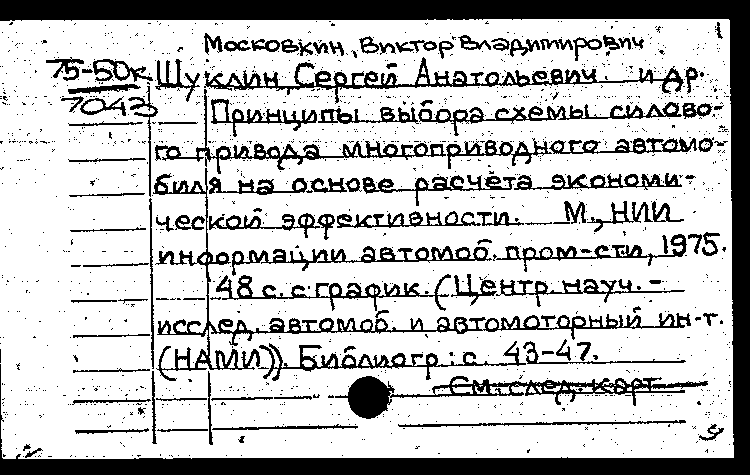 Московкин, Виктор Владимирович
75-50к Шуклин, Сергей Анатольевич. и др.
7043 Принципы выбора схемы силово-
го привода многоприводного автомо-
биля на основе расчета экономи-
ческой эффективности. М., НИИ
информации автомоб. пром-сти, 1975.
48 с. с график. (Центр. науч.-
исслед. автомоб. и автомоторный ин-т.
(НАМИ)). Библиогр: с. 43-47.
См. след. карт.